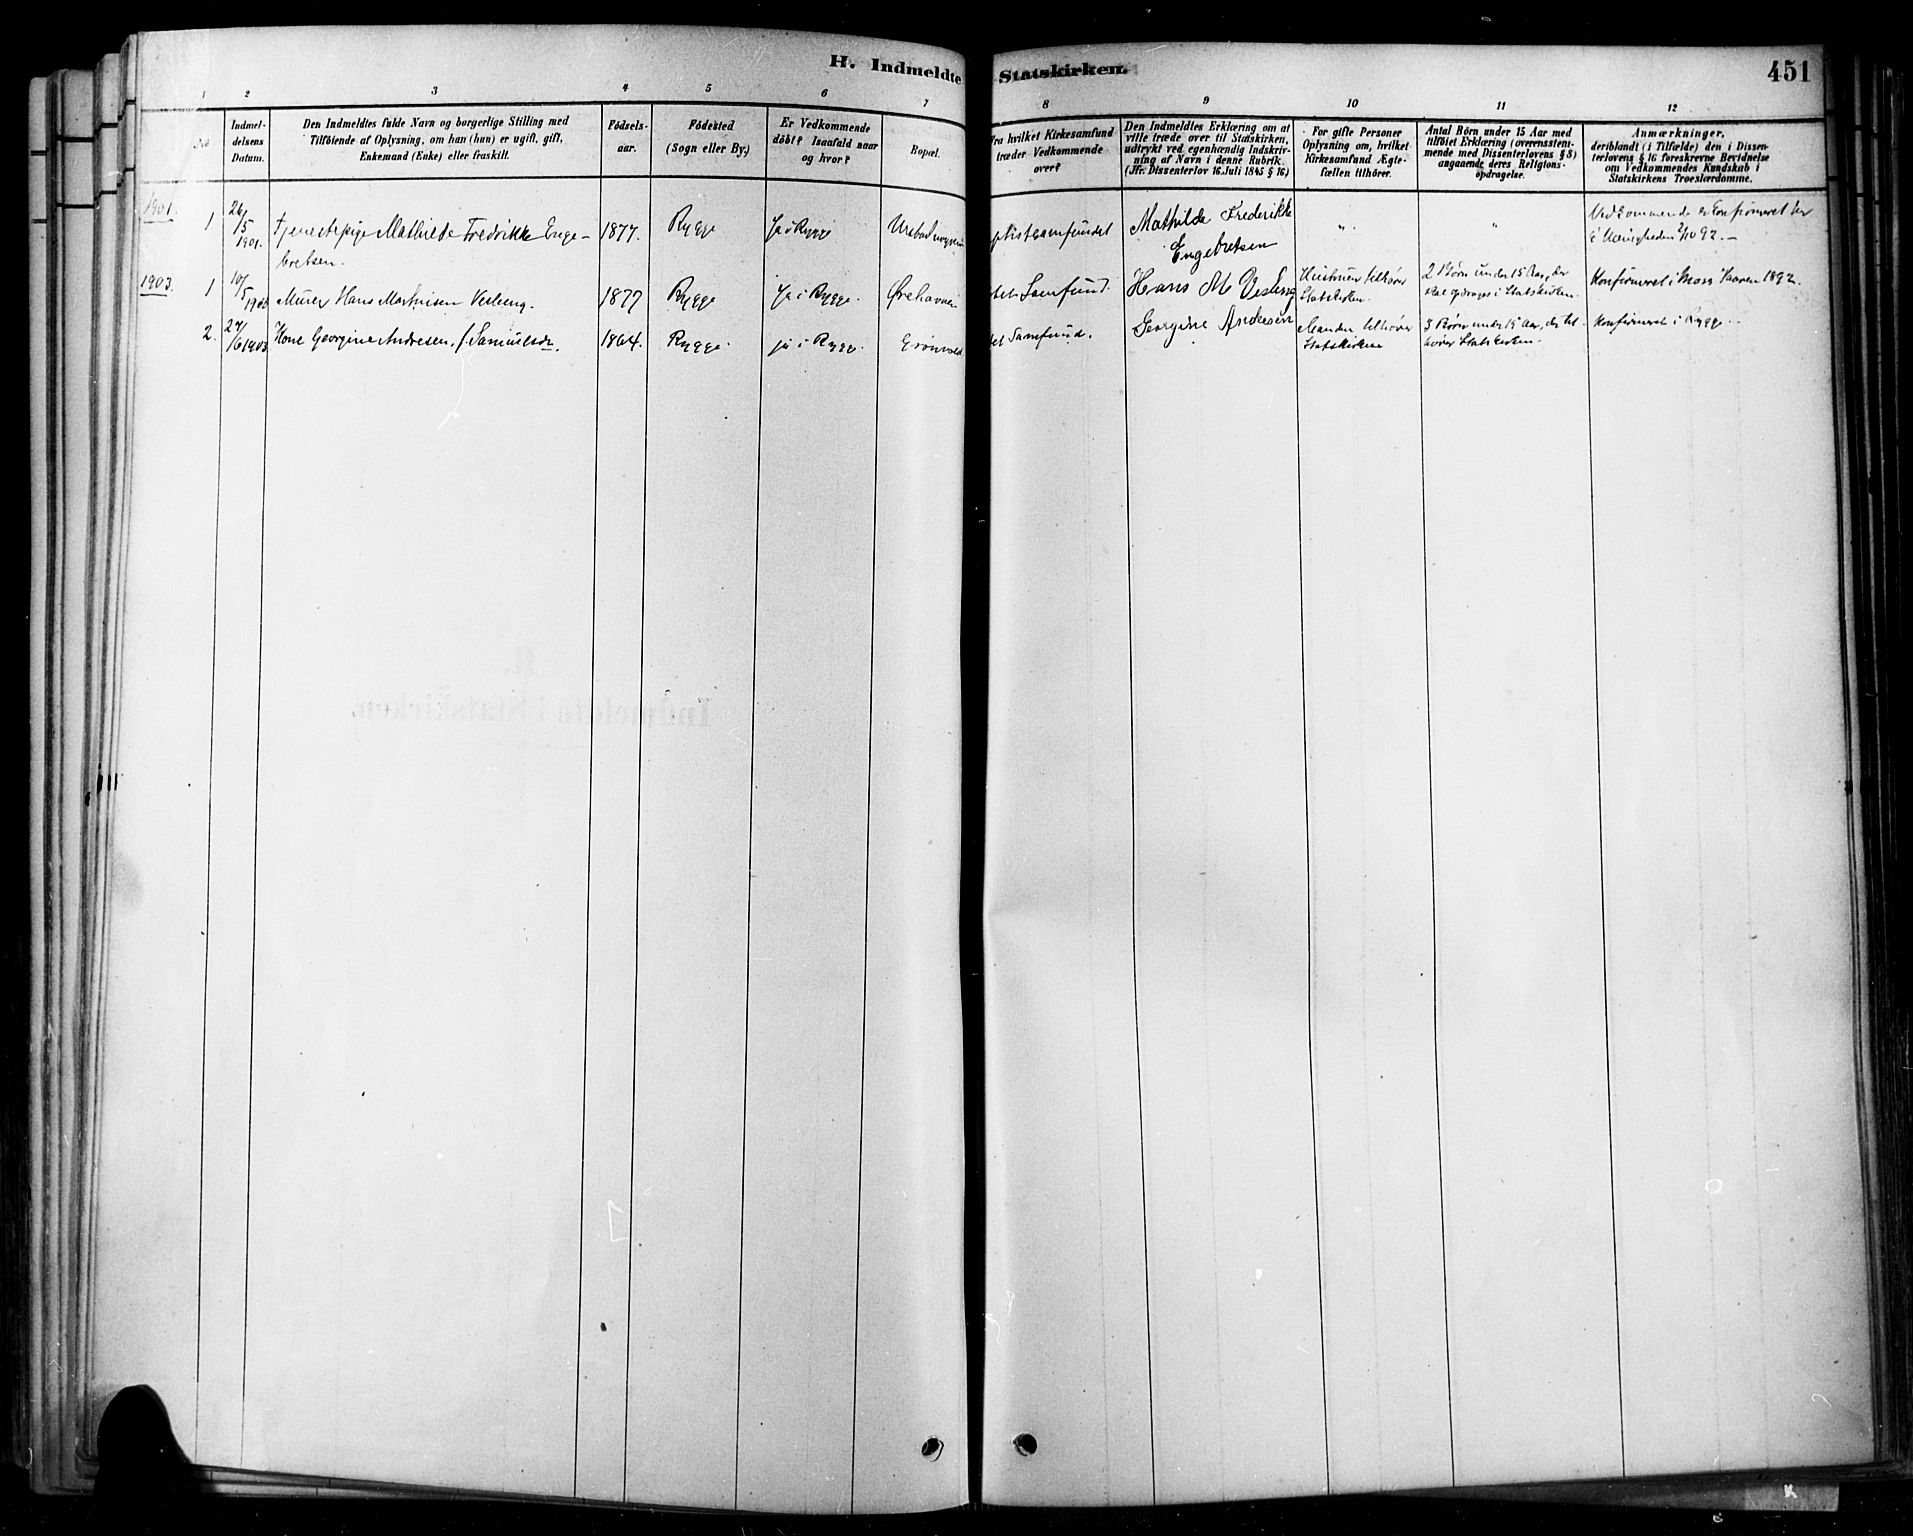 H. Indmeldte
Statskirken.
451
1 2 3 4 5 6 7
8 9 10 11 12
Indmel-
delsens
Datum.
Den Indmeldtes fulde Navn og borgerlige Stilling med
Tilföiende af Oplysning, om han (hun) er ugift, gift,
Enkemand (Enke) eller fraskilt.
Födsels-
aar.
Födested
(Sogn eller By.)
Er Vedkommende
döbt? Isaafald naar
og hvor?
Bopæl.
Fra hvilket Kirkesamfund
træder Vedkommende
over?
Den Indmeldtes Erklæring om at
ville træde over til Statskirken,
udtrykt ved egenhændig Indskriv-
ning af Navn i denne Rubrik.
(Jfr. Dissenterlov 16. Juli 1845 § 16)
For gifte Personer
Oplysning om, hvilket
Kirkesamfund Ægte-
fællen tilhörer.
Antal Börn under 15 Aar med
tilföiet Erklæring (overensstem-
mende med Dissenterlovens § 8)
angaaende deres Religions-
opdragelse.
Anmærkninger,
deriblandt (i Tilfælde) den i Dissen-
terlovens § 16 foreskrevne Bevidnelse
om Vedkommendes Kundskab i
Statskirkens Troeslærdomme.
1901.
1
26/5
1901.
Tjenestepige Mathilde Fredrikke Enge-
bretsen.
1877.
Rygge
Ja i Rygge
ptistsamfundet
Mathilde Frederikke
Engebretsen
" "
Vedkommende er konfirmeret her
i Menigheden 2/10 92. –
1903.
1
10/5 1903
Murer Hans Mathisen Vesteng.
1877
Rygge
Ja i Rygge.
Ørehavnen
tet Samfund.
Hans M Vesteng
Hustruen tilhører
Statskirken.
2 Børn under 15 Aar, der
skal opdrages i Statskirken.
Konfirmeret i Moss Høsten 1892.
2.
27/6 1903
Kone Georgine Andresen, f. Samuelsdr.
1864.
Rygge.
ja i Rygge.
Grønvold
tet Samfund.
Georgine Andresen
Manden tilhører
Statskirken
3 Børn under 15 Aar, der til-
hører Statskirken.
Konfirmeret i Rygge.